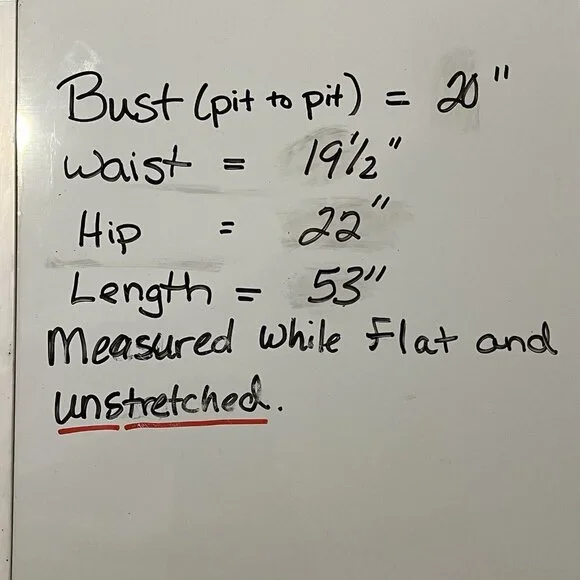 Bust (pit to pit) = 20"
Waist = 19 1/2"
Hip = 22"
Length = 53"
Measured while Flat and
unstretched.